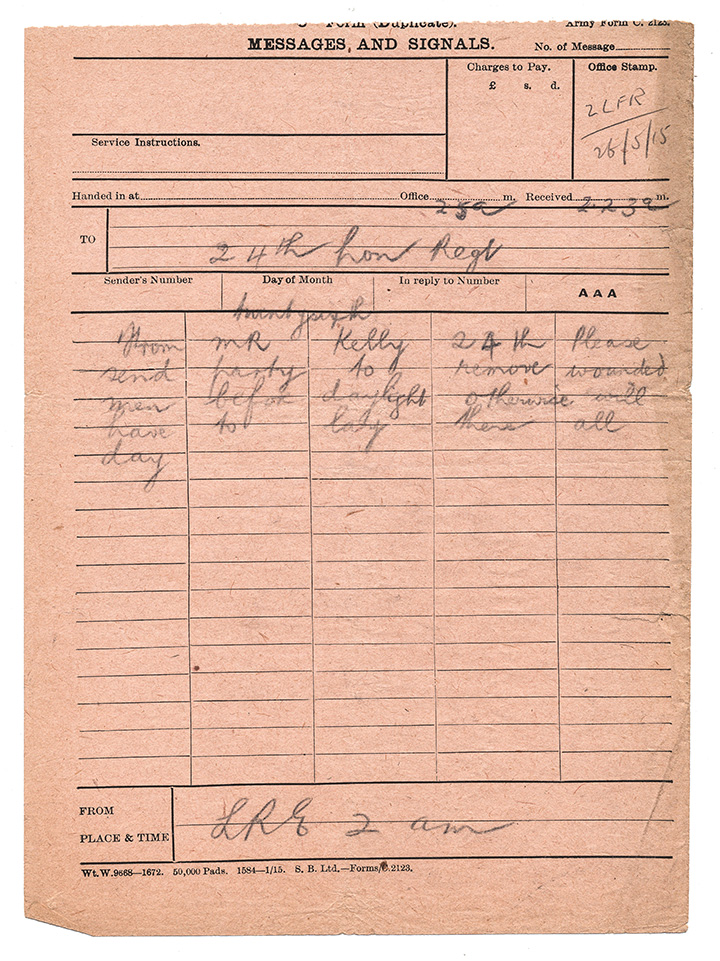 Form (Duplicate). Army Form C. 2123.
MESSAGES, AND SIGNALS. No. of Message
Charges to Pay. Office Stamp.
£ s. d.
2 LFR
26/5/15
Service Instructions.
Handed in at Office m. Received m.
2.5a 2.23a
TO 24th Lon Regt
Sender's Number Day of Month In reply to Number AAA
twentysixth
From MR Kelly 24th Please
send party to remove wounded
men before daylight otherwise will
have to lay there all
day
FROM
PLACE & TIME
LRE 2 am
Wt. W.9668—1672. 50,000 Pads. 1584—1/15. S. B. Ltd.—Forms/C.2123.